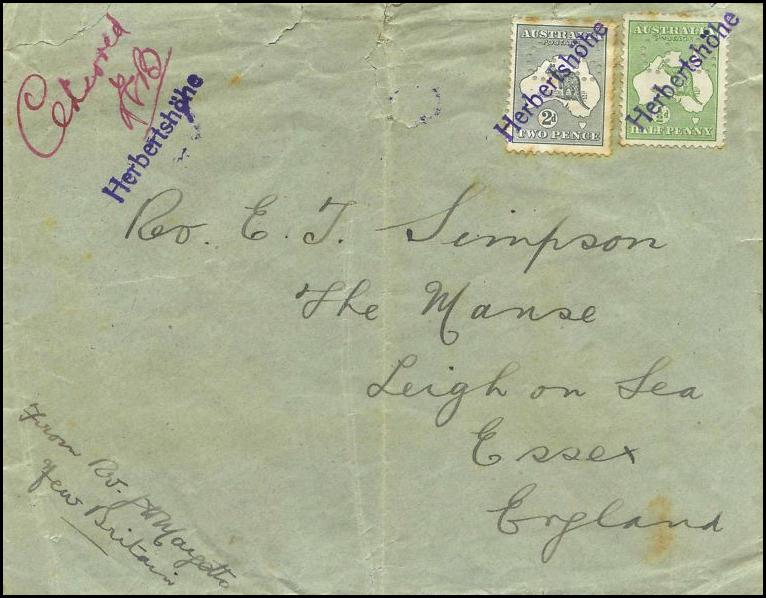 Censored
Herbertshöhe
AUSTRALIA
POSTAGE
2d
TWO PENCE
Herbertshöhe
AUSTRALIA
½d
HALFPENNY
Herbertshöhe
Rev. E. T. Simpson
The Manse
Leigh on Sea
Essex
England
From Rev.
New Britain